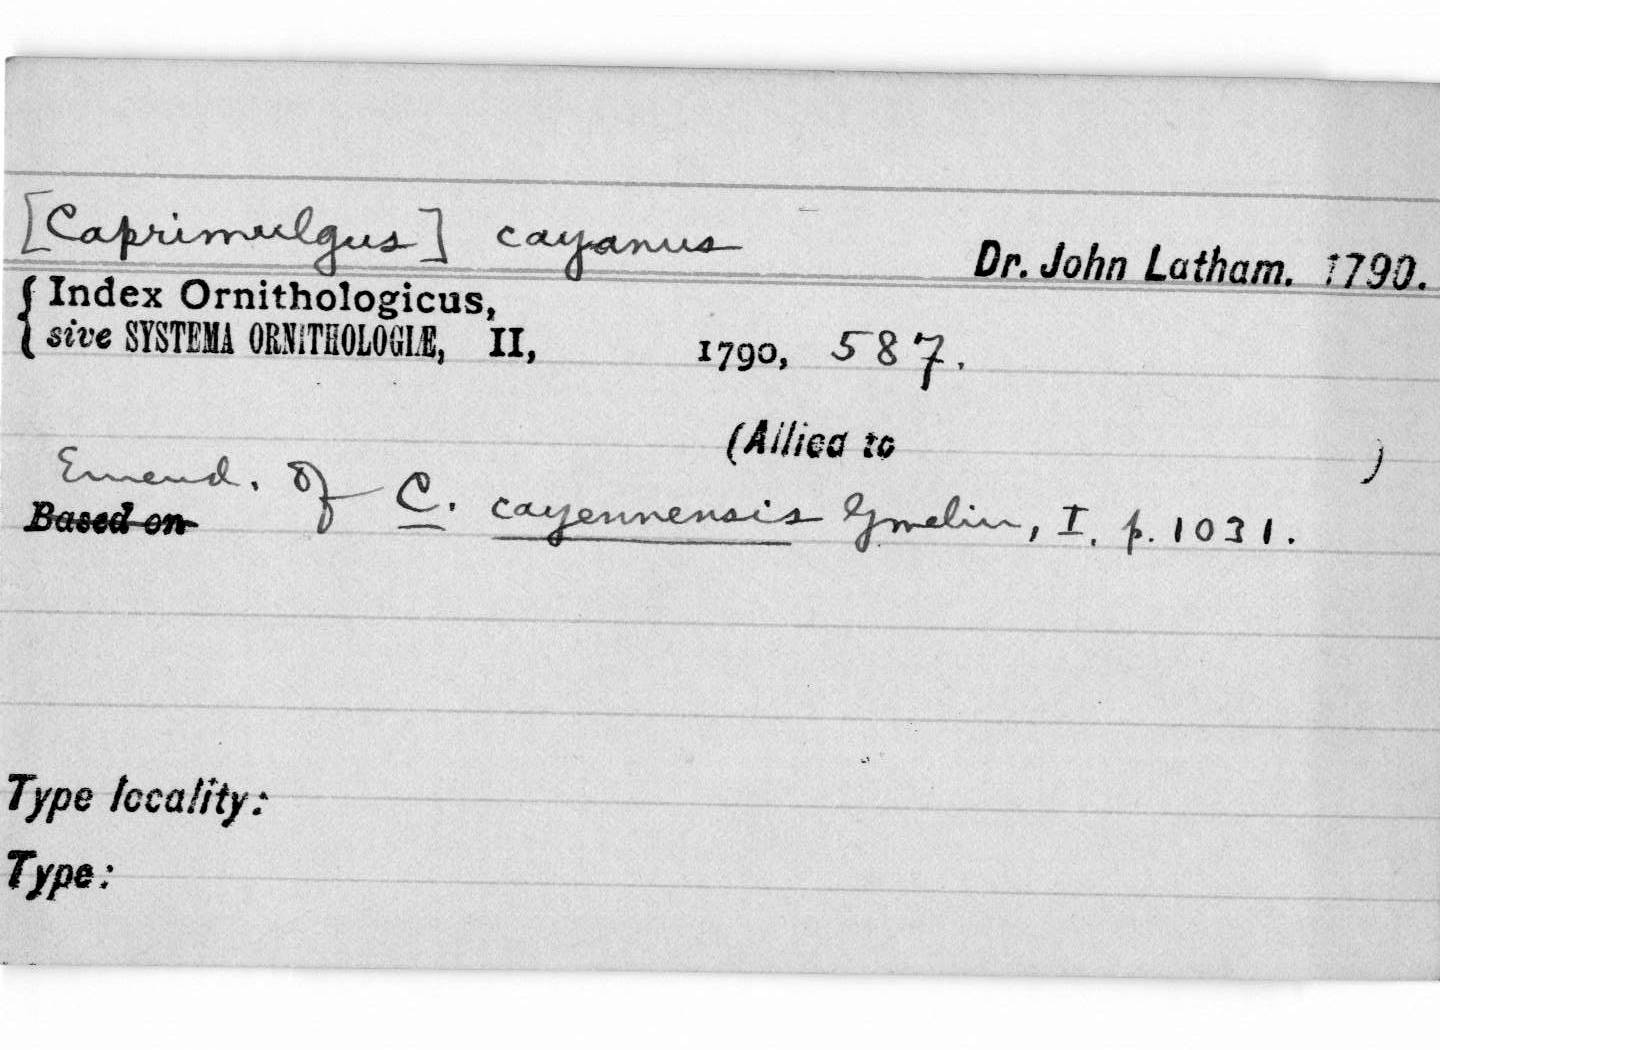 [Caprimulgus] cayanus Dr. John Latham. 1790.
Index Ornithologicus,
sive SYSTEMA ORNITHOLOGIÆ, II, 1790, 587.
(Allied to )
Emend. of C. cayennensis Gmelin, I. p. 1031.
Based on
Type locality:
Type: